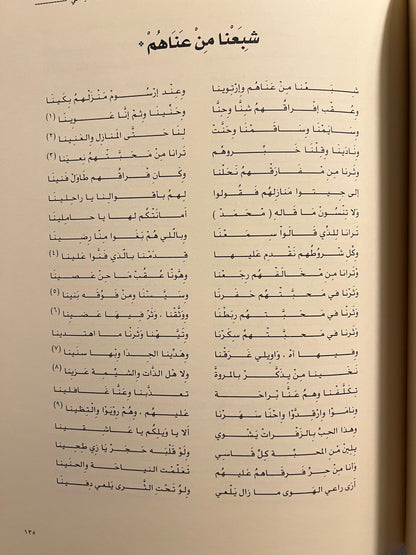 شبعنا من عناهم *
شبعنا من عناهم وارتوينا وعند ارسوم منزلهم بكينا
وعقب افراقهم شبنا وحنا وحنينا وثم إنا عوينا (١)
وسايمنا وساقمنا وحنت لنا حتى المنازل والغنينا (٢)
وقلنا خبروهم ترانا من محبتهم نعينا (٣)
وترنا من مفارقهم نحلنا وكان فراقهم طاول فنينا
إلى جيتوا منازلهم فقولوا لهم باقوالنا يا راحلينا
ولا تنسون ما قاله (محمد) أمانتكم لها يا حاملينا
ترانا للذي قالوا سمعنا وباللي هم بغوا منا رضينا
وكل شروطهم نقدم عليها قدمنا بالذي فنوا علينا (٤)
وترانا من مخالفهم رجعنا وهونا عقب ما حن عصينا
وثرنا في محبتهم حفرنا وسيسنا ومن فوقه بنينا (٥)
وثرنا في محبتهم ربطنا ووثقنا، وثر فيها غضينا (٦)
وثرنا في محبتهم سكرنا وتيهنا وثرنا ما اهتدينا
وفيها آه، واويلي غرقنا وهدينا الجدا وبها سنينا (٧)
نخينا من يذكر بالمروة ولا هل الذات والشيمة عزينا (٨)
تكلفنا وهم عنا براحة تعذبنا وعنا غافلينا
وناموا وارقدوا واحنا سهرنا عليهم، وهم رويوا والتظينا (٩)
وهذا الحب بالزفرات يشوي ألا يا ويلكم يا عاشقينا
يلين من المحبة كل قاسي ولو قلبه حجر يازي طحينا
وأنا من حر فرقاهم عليهم تعلمت النياحة والحنينا
أرى راعي الهوى ما زال يلعي ولو تحت الثرى يلعي دفينا
١٣٥